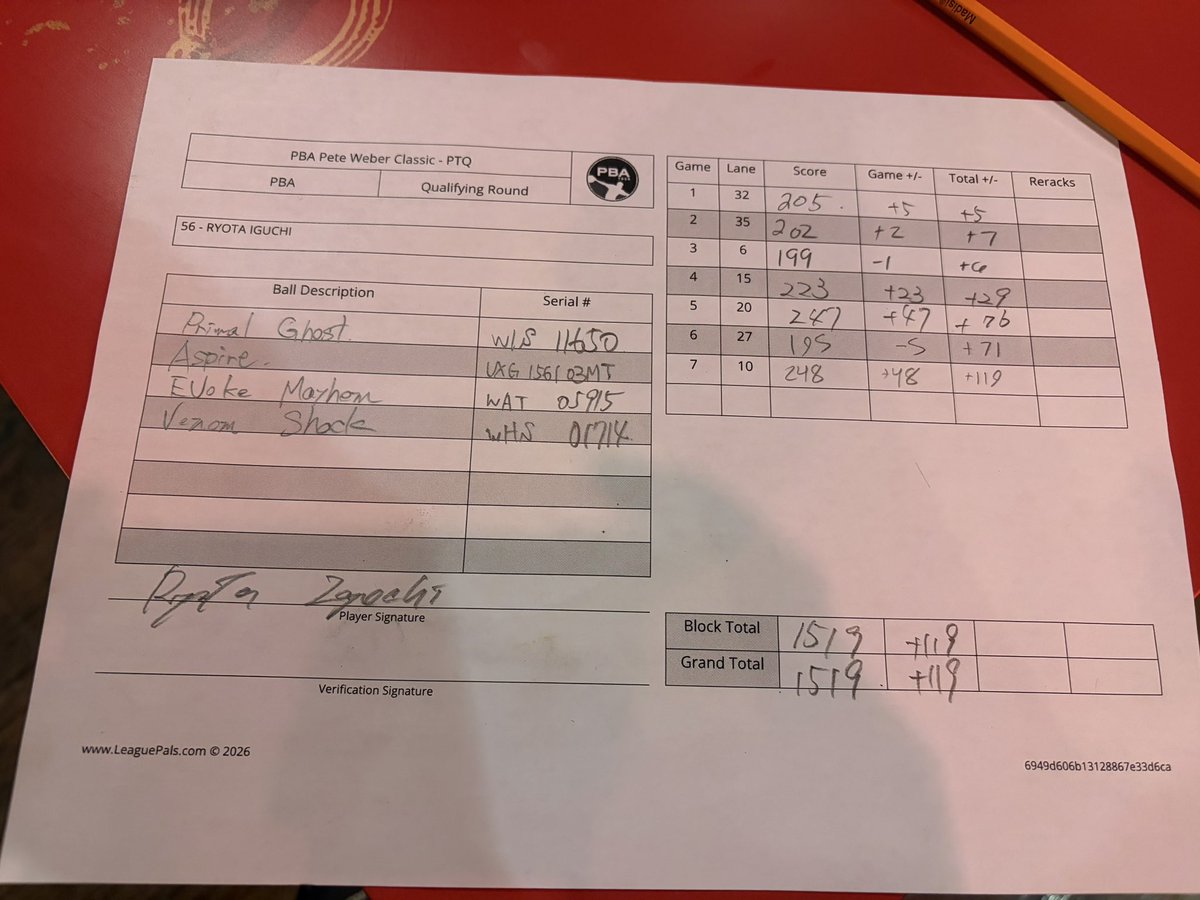 Madisi
PBA Pete Weber Classic - PTQ
PBA Qualifying Round
PBA
56 - RYOTA IGUCHI
Ball Description Serial #
Primal Ghost. WIS 11650
Aspire. UXG 156103MT
EVoke Mayhem WAT 05915
Venom Shock WHS 01714
Player Signature
Verification Signature
www.LeaguePals.com © 2026
Game Lane Score Game +/- Total +/- Reracks
1 32 205 +5 +5
2 35 202 +2 +7
3 6 199 -1 +6
4 15 223 +23 +29
5 20 247 +47 +76
6 27 195 -5 +71
7 10 248 +48 +119
Block Total 1519 +119
Grand Total 1519 +119
6949d606b13128867e33d6ca